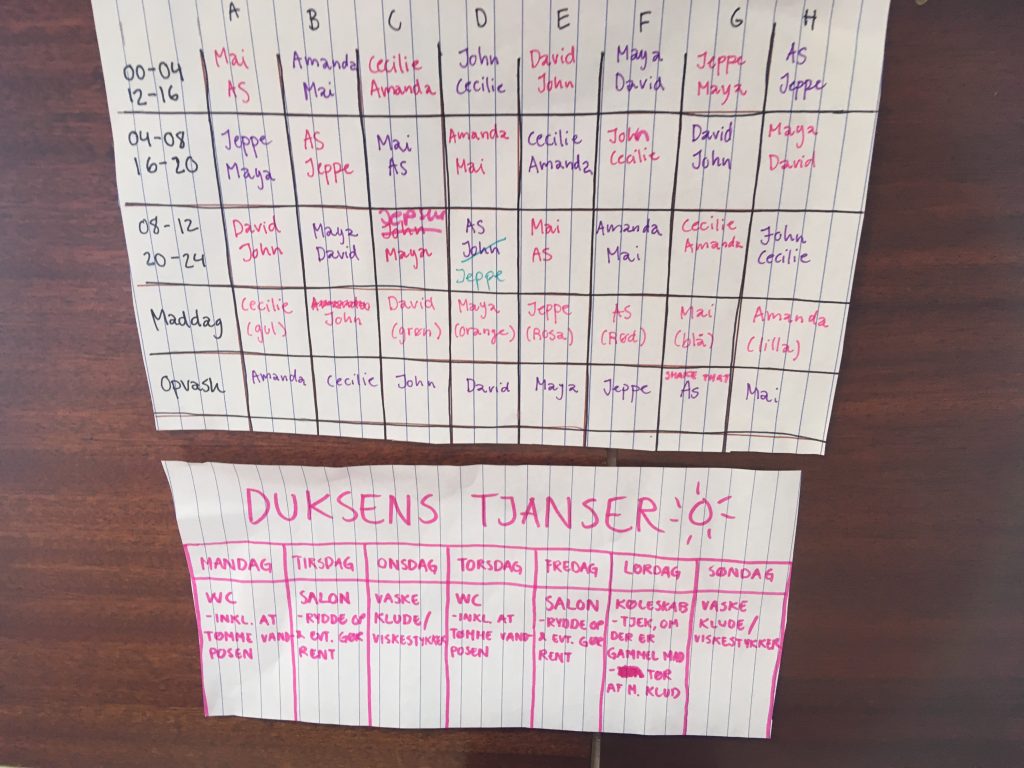 A B C D E F G H
00-04 Mai Amanda Cecilie John David Maya Jeppe AS
12-16 AS Mai Amanda Cecilie John David Maya Jeppe
04-08 Jeppe AS Mai Amanda Cecilie John David Maya
16-20 Maya Jeppe AS Mai Amanda Cecilie John David
08-12 David Maya John AS Mai Amanda Cecilie John
20-24 John David Maya John AS Mai Amanda Cecilie
Jeppe
Maddag Cecilie John David Maya Jeppe AS Mai Amanda
(gul) (grøn) (orange) (Rosa) (Rød) (blå) (lilla)
SHAKE THAT
Opvask Amanda Cecilie John David Maya Jeppe As Mai
DUKSENS TJANSER
MANDAG TIRSDAG ONSDAG TORSDAG FREDAG LØRDAG SØNDAG
WC
-INKL. AT
TØMME VAND-
POSEN
SALON
-RYDDE OP
& EVT. GØR
RENT
VASKE
KLUDE/
VISKESTYKKER
WC
-INKL. AT
TØMME VAND-
POSEN
SALON
-RYDDE OP
& EVT. GØR
RENT
KØLESKAB
-TJEK, OM
DER ER
GAMMEL MAD
- TØR
AF M. KLUD
VASKE
KLUDE/
VISKESTYKKER